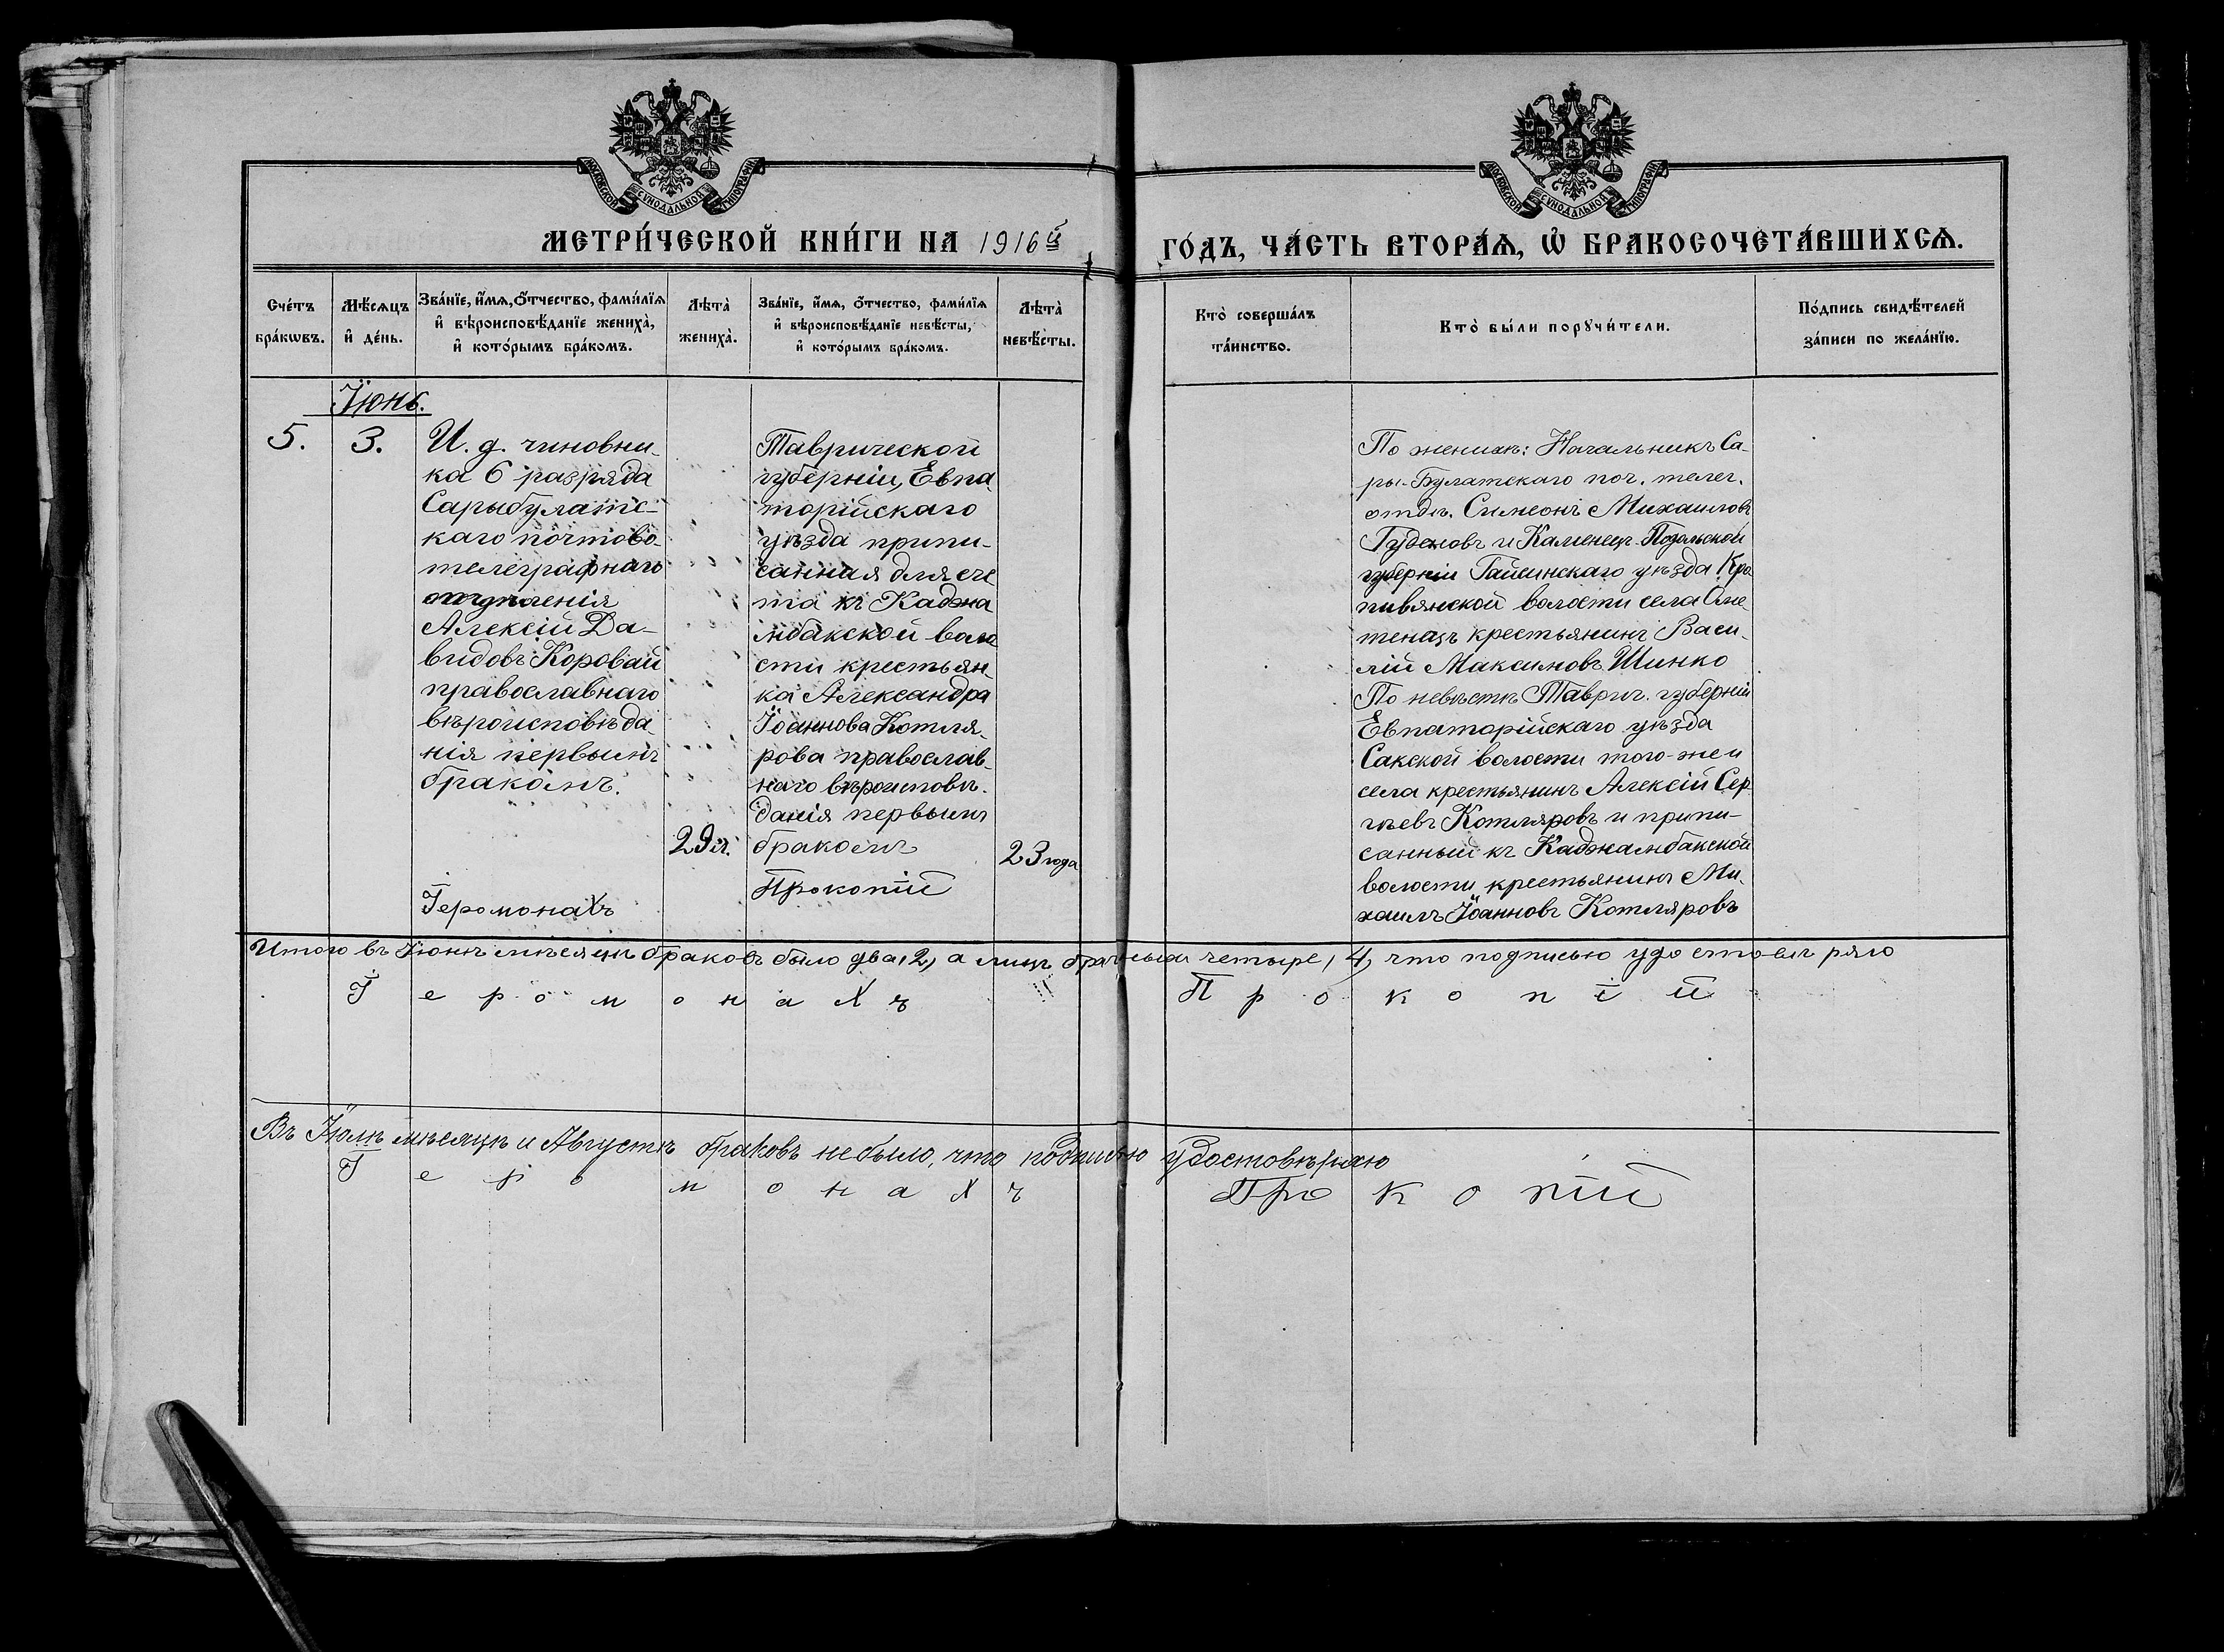 МОСКОВСКОЙ СѴНОДАЛЬНОЙ ТИПОГРАФІИ
МОСКОВСКОЙ СѴНОДАЛЬНОЙ ТИПОГРАФІИ
МЕТРИ́ЧЕСКОЙ КНИ́ГИ НА 1916й
ГО́ДЪ, ЧА́СТЬ ВТОРА́Ѧ, Ѡ҆ БРАКОСОЧЕТА́ВШИХСѦ.
Сче́тъ бра́кѡвъ.
Мѣ́сѧцъ и҆ де́нь.
Зва́нїе, и҆́мѧ, ѻ҆́тчество, фами́лїѧ
и҆ вѣроисповѣ́данїе жениха̀,
и҆ кото́рымъ бра́комъ.
Лѣта̀ жениха̀.
Зва́нїе, и҆́мѧ, ѻ҆́тчество, фами́лїѧ
и҆ вѣроисповѣ́данїе невѣ́сты,
и҆ кото́рымъ бра́комъ.
Лѣта̀ невѣ́сты.
Кто̀ соверша́лъ та́инство.
Кто̀ бы́ли порꙋчи́тели.
По́дпись свидѣ́телей за́писи по жела́нїю.
Іюнь.
5.
3.
И. д. чиновни-
ка 6 разряда
Сарыбулатс-
каго почтово-
телеграфнаго
отдѣленія
Алексій Да-
видовъ Коровай
православнаго
вѣроисповѣда-
нія первымъ
бракомъ.
29 л.
Таврической
губерніи, Евпа
торійскаго
уѣзда припи-
санная для сче
та къ Каджа
мбакской воло
сти крестьян-
ка Александра
Іоаннова Котля-
рова православ-
наго вѣроисповѣ-
данія первымъ
бракомъ
23 года
Іеромонахъ Прокопій
По женихѣ: Начальникъ Са-
ры-Булатскаго поч. телег.
отдѣ. Симеонъ Михаиловъ
и Каменец-Подольской
губерніи Гайсинскаго уѣзда Кра
пивянской волости села
крестьянинъ Васи-
лій Максимовъ Шинко
По невѣстѣ Таврич. губерніи
Евпаторійскаго уѣзда
Сакской волости того-же и
села крестьянинъ Алексій Сер
гѣевъ Котляровъ и припи-
санный къ Каджамбакской
волости крестьянинъ Ми-
хаилъ Іоанновъ Котляровъ
Итого въ Іюнѣ мѣсяцѣ браковъ было два, 2, а лицъ брачныхъ четыре, 4, что подписью удостовѣряю
Іеромонахъ Прокопій
Въ Іюлѣ мѣсяцѣ и Августѣ браковъ не было, что подписью удостовѣряю
Іеромонахъ Прокопій